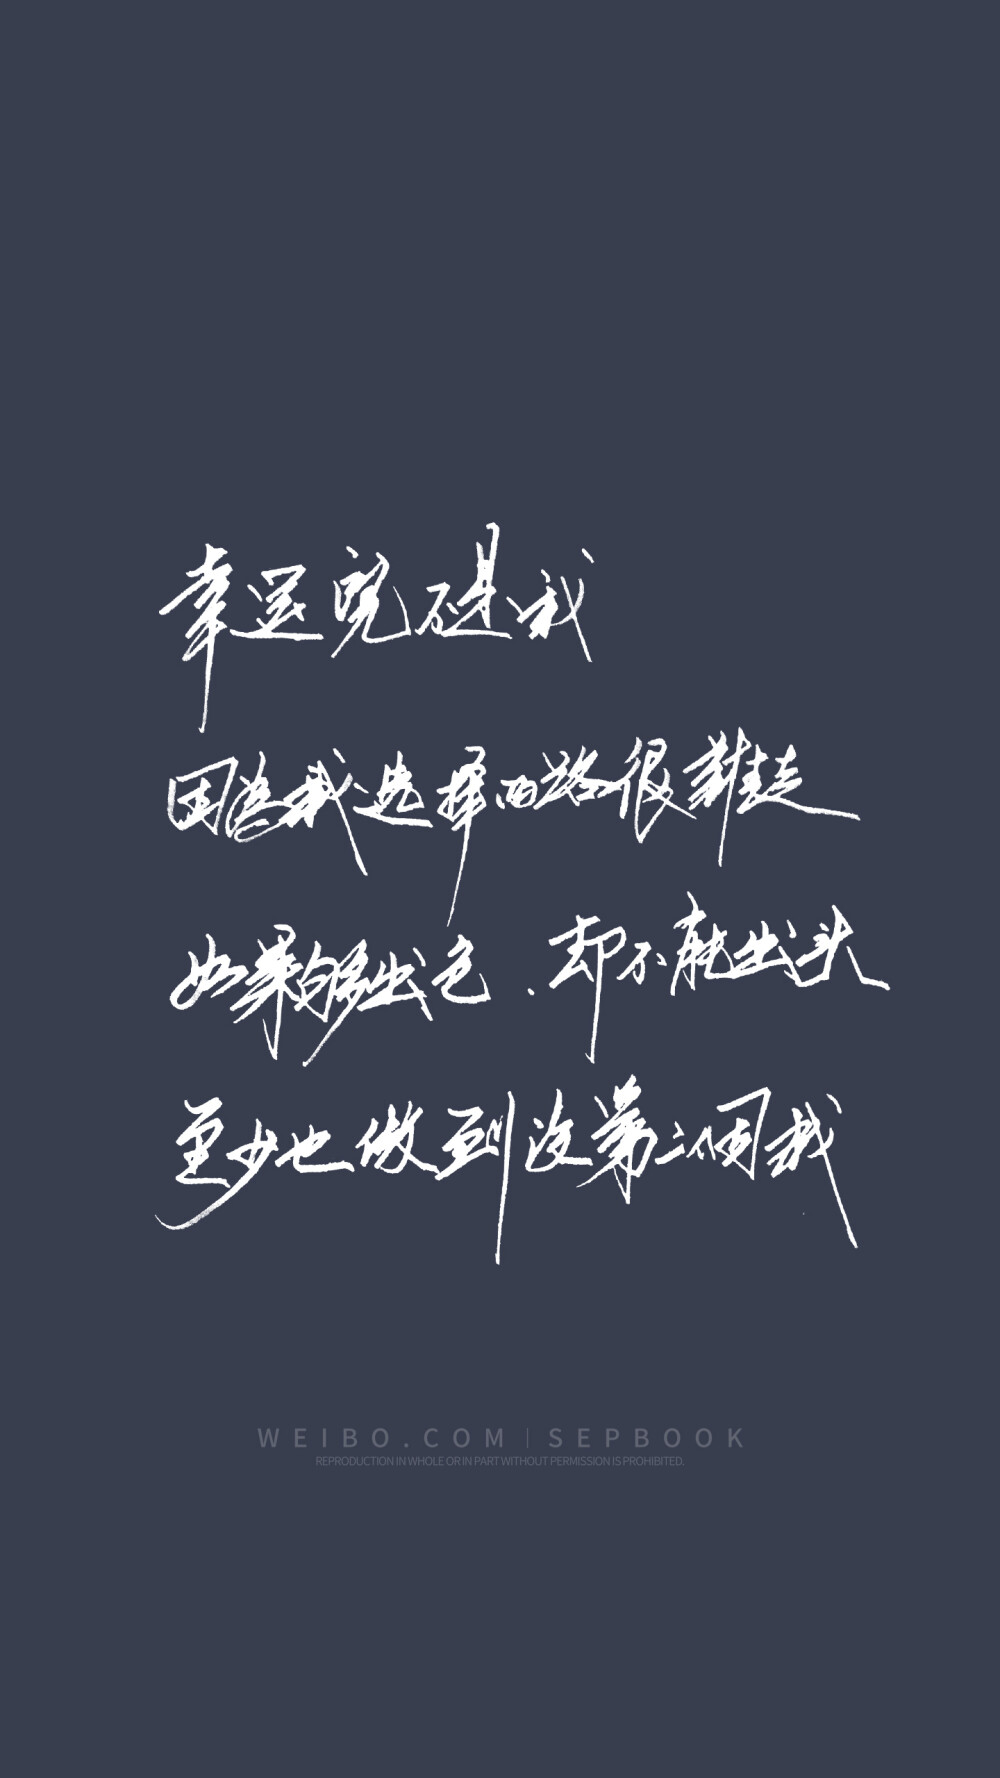 幸运说碍是我
因为我选择的路很难走
如果够出色.却不能出头
至少也做到没第二个我
WEIBO.COM | SEPBOOK
REPRODUCTION IN WHOLE OR IN PART WITHOUT PERMISSION IS PROHIBITED.